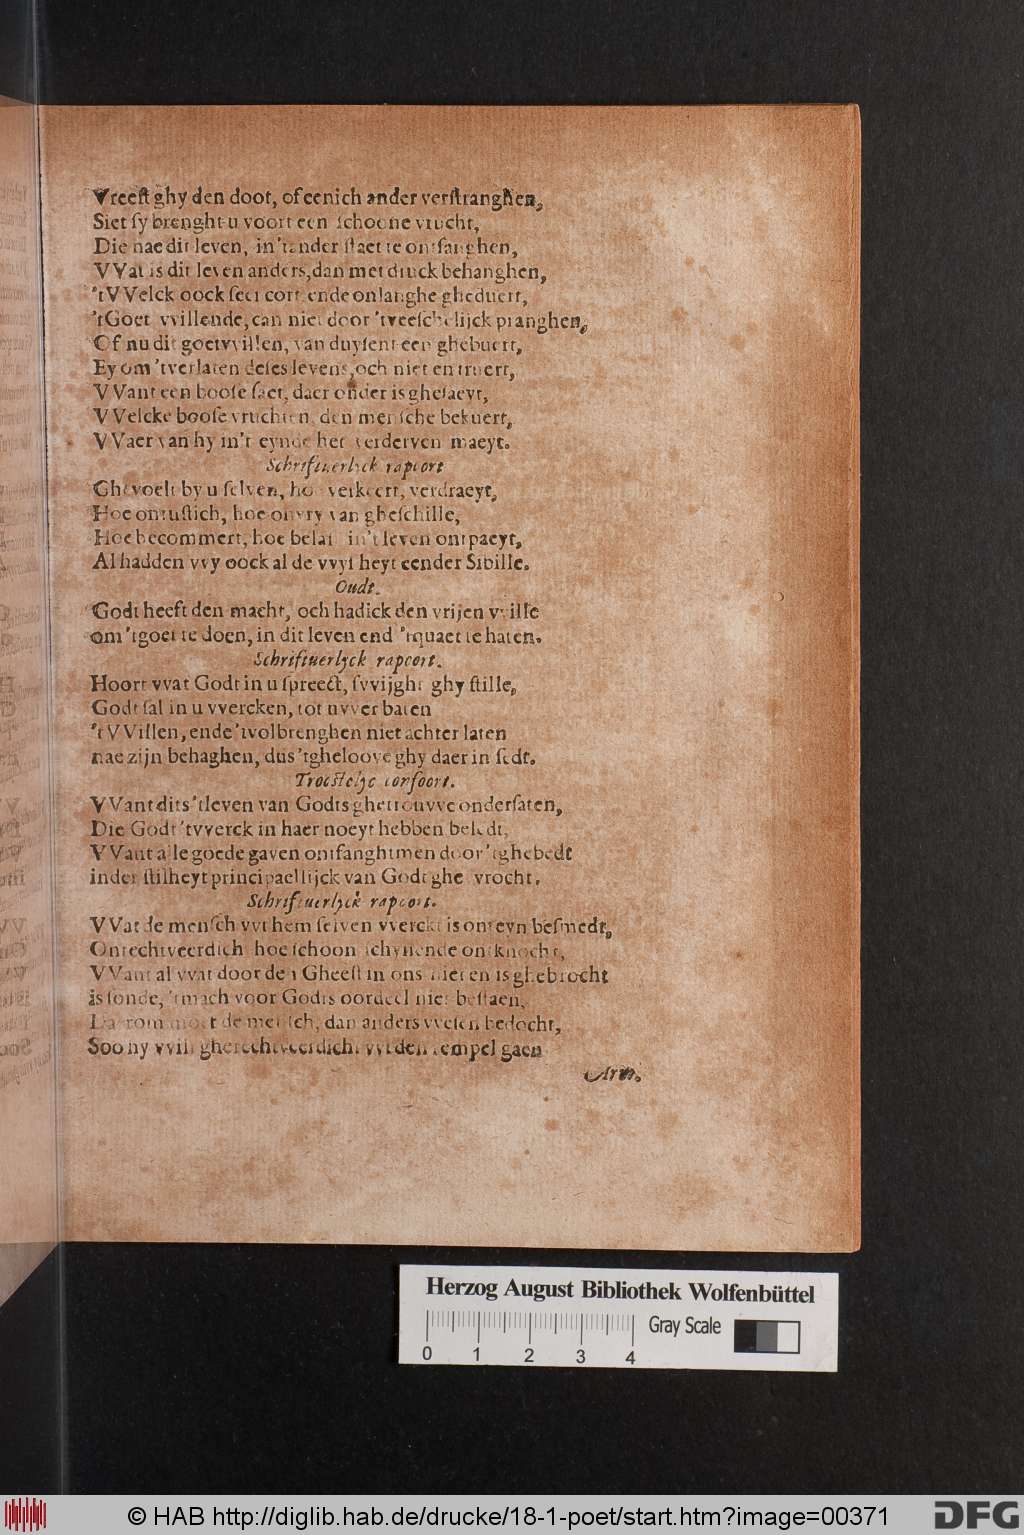 Vreest ghy den doot, of eenich ander verstranghen,
Siet sy brenght u voort een schoone vrucht,
Die nae dit leven, in 't ander staet te ontfanghen,
VVat is dit leven anders, dan met druck behanghen,
't VVelck oock seer cort ende onlanghe gheduert,
't Goet vvillende, can niet door 't vleeschelijck pranghen,
Of nu dit goetvvillen, van duysent een ghebuert,
Ey om 't verlaten deses levens, och niet en truert,
VVant een boose saet, daer onder is ghesaeyt,
VVelcke boose vruchten, den mensche bekuert,
VVaer van hy in 't eynde het verderven maeyt.
Schriftuerlyck rapoort
Ghevoelt by u selven, hoe verkeert, verdraeyt,
Hoe onrustich, hoe onvry van gheschille,
Hoe becommert, hoe belast in 't leven ontpaeyt,
Al hadden vvy oock al de vvysheyt eender Sibille.
Oudt.
Godt heeft den macht, och hadick den vrijen vville
om 't goet te doen, in dit leven end 't quaet te haten.
Schriftuerlyck rapoort.
Hoort vvat Godt in u spreect, svvijght ghy stille,
Godt sal in u vvercken, tot uvver baten
't VVillen, ende 't volbrenghen niet achter laten
nae zijn behaghen, dus 't gheloove ghy daer in sedt.
Troostelyc confoort.
VVant dits 't leven van Godts ghetrouvve ondersaten,
Die Godt 't vverck in haer noeyt hebben beledt,
VVant alle goede gaven ontfanghtmen door 't ghebedt
inder stilheyt principaellijck van Godt ghevrocht.
Schriftuerlyck rapoort.
VVat de mensch vvt hem selven vverckt is onreyn besmedt,
Onrechtveerdich hoe schoon schynende ont knocht,
VVant al vvat door den Gheest in ons niet en is ghebrocht
is sonde, 't mach voor Godts oordeel niet bestaen,
Daerom moet de mensch, dan anders vvesen bedocht,
Soo hy vvilt gherechtveerdicht vvt den tempel gaen
Arm.
Herzog August Bibliothek Wolfenbüttel
Gray Scale
0 1 2 3 4
© HAB http://diglib.hab.de/drucke/18-1-poet/start.htm?image=00371
DFG